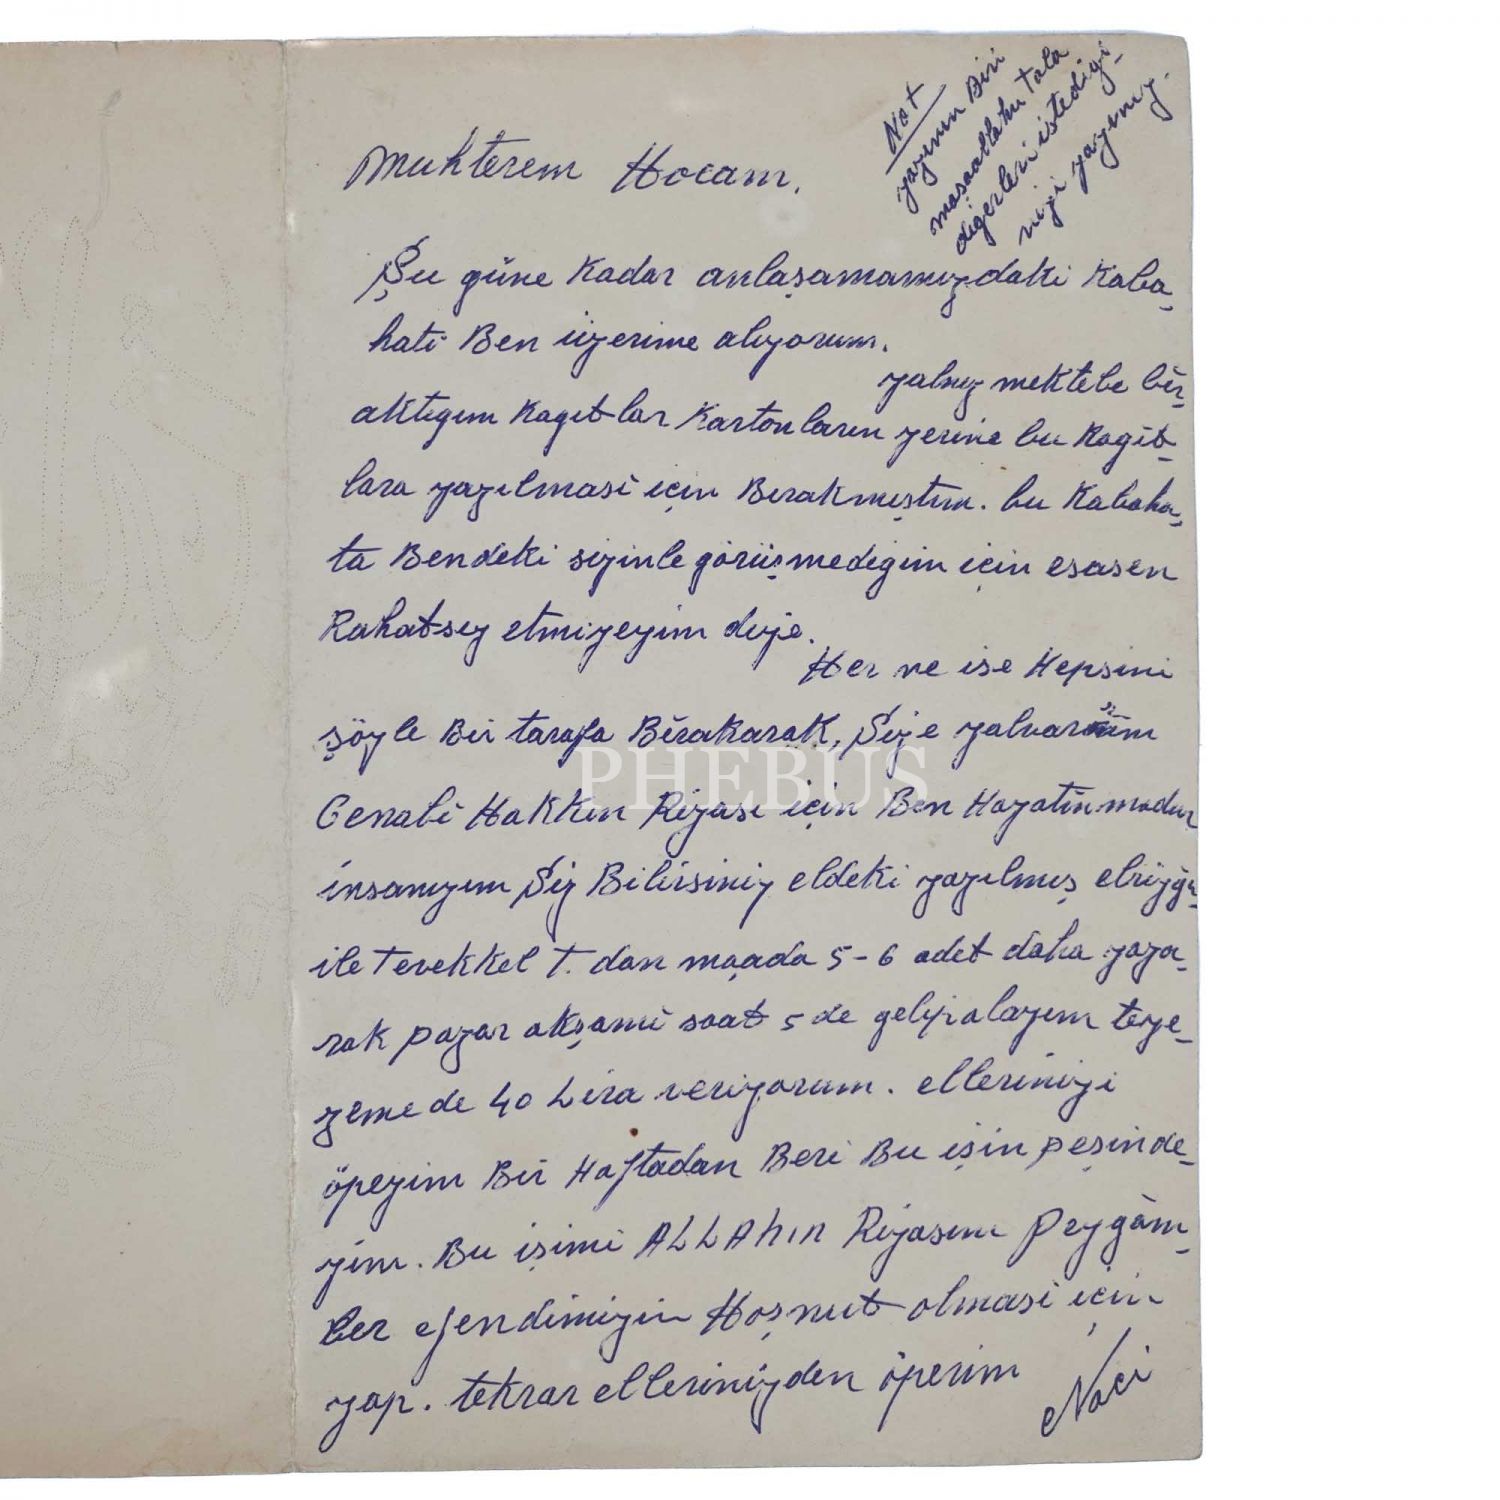 Not
yazının Biri
maşaallahu tala
diğerleri istediği-
nizi yazınız.
Muhterem Hocam,
Şu güne Kadar anlaşamamızdaki Kaba-
hati Ben üzerime alıyorum.
yalnız mektebe bir-
aktıgım Kagıtlar Kartonların yerine bu Kagıt-
lara yazılması için Bırakmıştım. bu Kabaha-
ta Bendeki sizinle görüşmedigim için esasen
Rahatsız etmiyeyim diye.
Her ne ise Hepsini
şöyle Bir tarafa Bırakarak, Size yalvarırım
Cenabi Hakkın Rizası için Ben Hayatın madur
insanıyım Siz Bilirsiniz eldeki yazılmış
ile tevekkel T. dan maada 5-6 adet daha yaza-
rak pazar akşamı saat 5 de gelip alayım teze-
zeme de 40 Lira veriyorum. ellerinizi
öpeyim Bir Haftadan Beri Bu işin peşinde-
yim. Bu işimi ALLAHIN Rizasını Peygâm-
ber efendimizin Hoşnut olması için
yap. tekrar ellerinizden öperim
Naci
PHEBUS